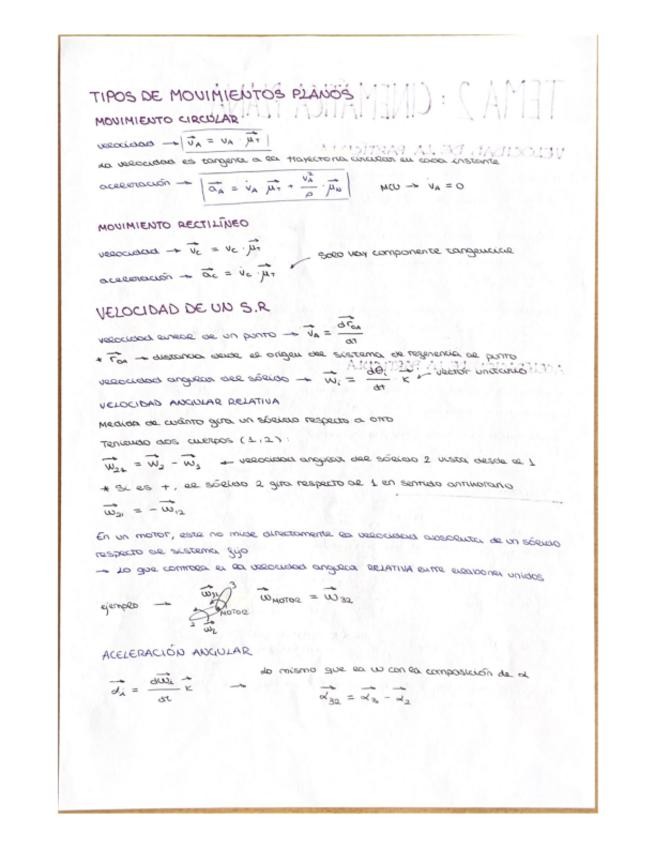 TIPOS DE MOVIMIENTOS PLANOS
MOVIMIENTO CIRCULAR
velocidad → v⃗_A = v_A · μ⃗_T
La velocidad es tangente a la trayectoria circular en cada instante
aceleración → a⃗_A = v̇_A μ⃗_T + v_A²/ρ · μ⃗_N MCU → v̇_A = 0
MOVIMIENTO RECTILÍNEO
velocidad → v⃗_C = v_C · μ⃗_T
solo hay componente tangencial
aceleración → a⃗_C = v̇_C · μ⃗_T
VELOCIDAD DE UN S.R
velocidad lineal de un punto → v⃗_A = dr⃗_OA/dt
* r⃗_OA → distancia desde el origen del sistema de referencia al punto
velocidad angular del sólido → w⃗_i = dθ_i/dt k⃗ ← vector unitario
VELOCIDAD ANGULAR RELATIVA
Medida de cuánto gira un sólido respecto a otro
Teniendo dos cuerpos (1,2):
w⃗_21 = w⃗_2 - w⃗_1 ← velocidad angular del sólido 2 vista desde el 1
* Si es +, el sólido 2 gira respecto al 1 en sentido antihorario
w⃗_21 = - w⃗_12
En un motor, este no mide directamente la velocidad absoluta de un sólido
respecto al sistema fijo
→ Lo que controla es la velocidad angular RELATIVA entre eslabones unidos
ejemplo → 3 MOTOR 2 w⃗_2 w⃗_MOTOR = w⃗_32
ACELERACIÓN ANGULAR
Lo mismo que la w con la composición de α
α⃗_i = dw⃗_i/dt k⃗ → α⃗_32 = α⃗_3 - α⃗_2